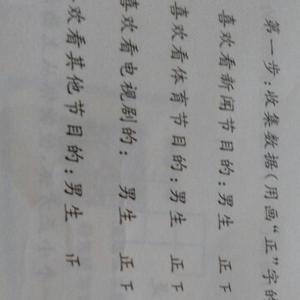 第一步:收集数据(用画“正”字的
喜欢看新闻节目的:男生 正下
喜欢看体育节目的:男生 正下
喜欢看电视剧的: 男生 正下
欢看其他节目的:男生